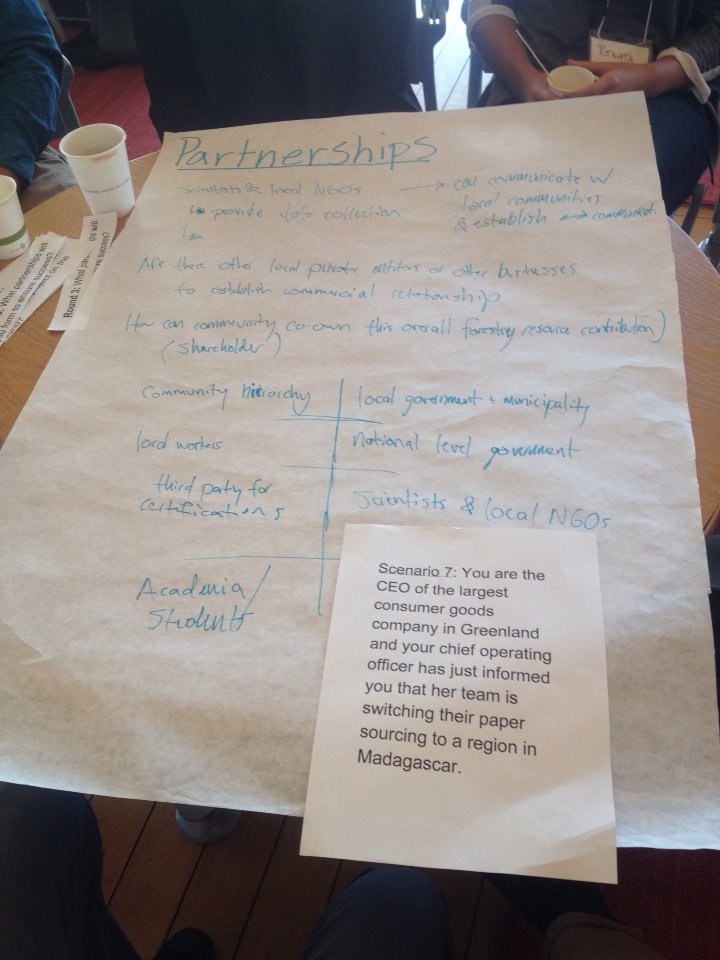 Renata
Partnerships
Scientists & local NGOs → can communicate w/
local communities
& establish ↔ communicati
↳ provide data collection
↳
Are there other local private entities or other businesses
to establish commercial relationship
How can community co-own this overall forestry resource contribution)
(shareholder)
Community hierarchy
local government & municipality
local workers
National level government
third party for
certifications
Scientists & local NGOs
Academia/
Students
Scenario 7: You are the
CEO of the largest
consumer goods
company in Greenland
and your chief operating
officer has just informed
you that her team is
switching their paper
sourcing to a region in
Madagascar.
Round 3: What par
ips will
success?
What partnerships will
form to ensure success?